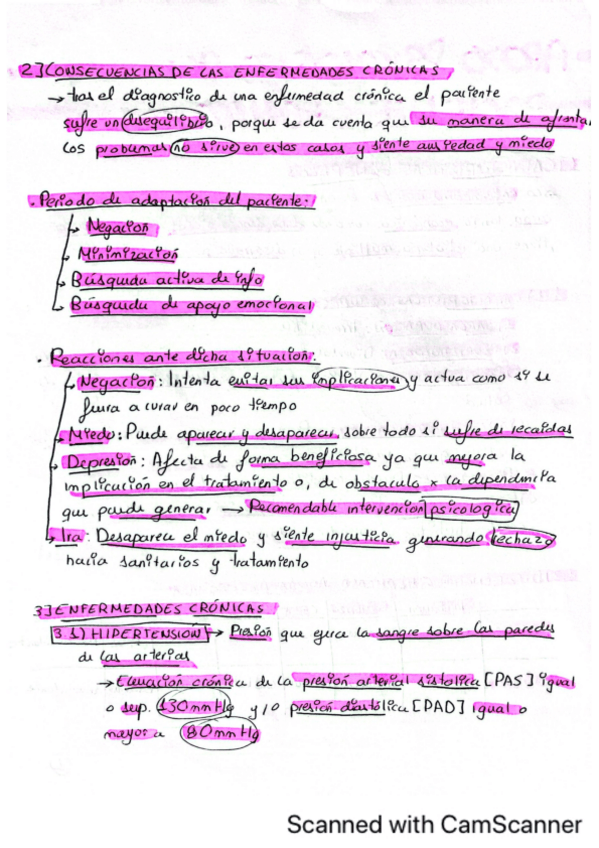 2] CONSECUENCIAS DE LAS ENFERMEDADES CRÓNICAS
→ tras el diagnostico de una enfermedad crónica el paciente
sufre un desequilibrio, porque se da cuenta que su manera de afrontar
los problemas no sirve en estos casos y siente ansiedad y miedo
· Periodo de adaptacion del paciente:
↳ Negacion
↳ Minimización
↳ Búsqueda activa de info
↳ Búsqueda de apoyo emocional
· Reacciones ante dicha situacion:
↳ Negacion: Intenta evitar sus implicaciones y actua como si se
fuera a curar en poco tiempo
↳ Miedo: Puede aparecer y desaparecer sobre todo si sufre de recaidas
↳ Depresion: Afecta de forma beneficiosa ya que mejora la
implicacion en el tratamiento o, de obstaculo x la dependencia
que puede generar → Recomendable intervencion psicologica
↳ Ira: Desaparece el miedo y siente injusticia generando rechazo
hacia sanitarios y tratamiento
3] ENFERMEDADES CRÓNICAS
3.1) HIPERTENSION → Presion que ejerce la sangre sobre las paredes
de las arterias
→ Elevación crónica de la presion arterial sistolica [PAS] igual
o sup. 130mmHg y/o presion diastolica [PAD] igual o
mayor a 80mmHg
Scanned with CamScanner